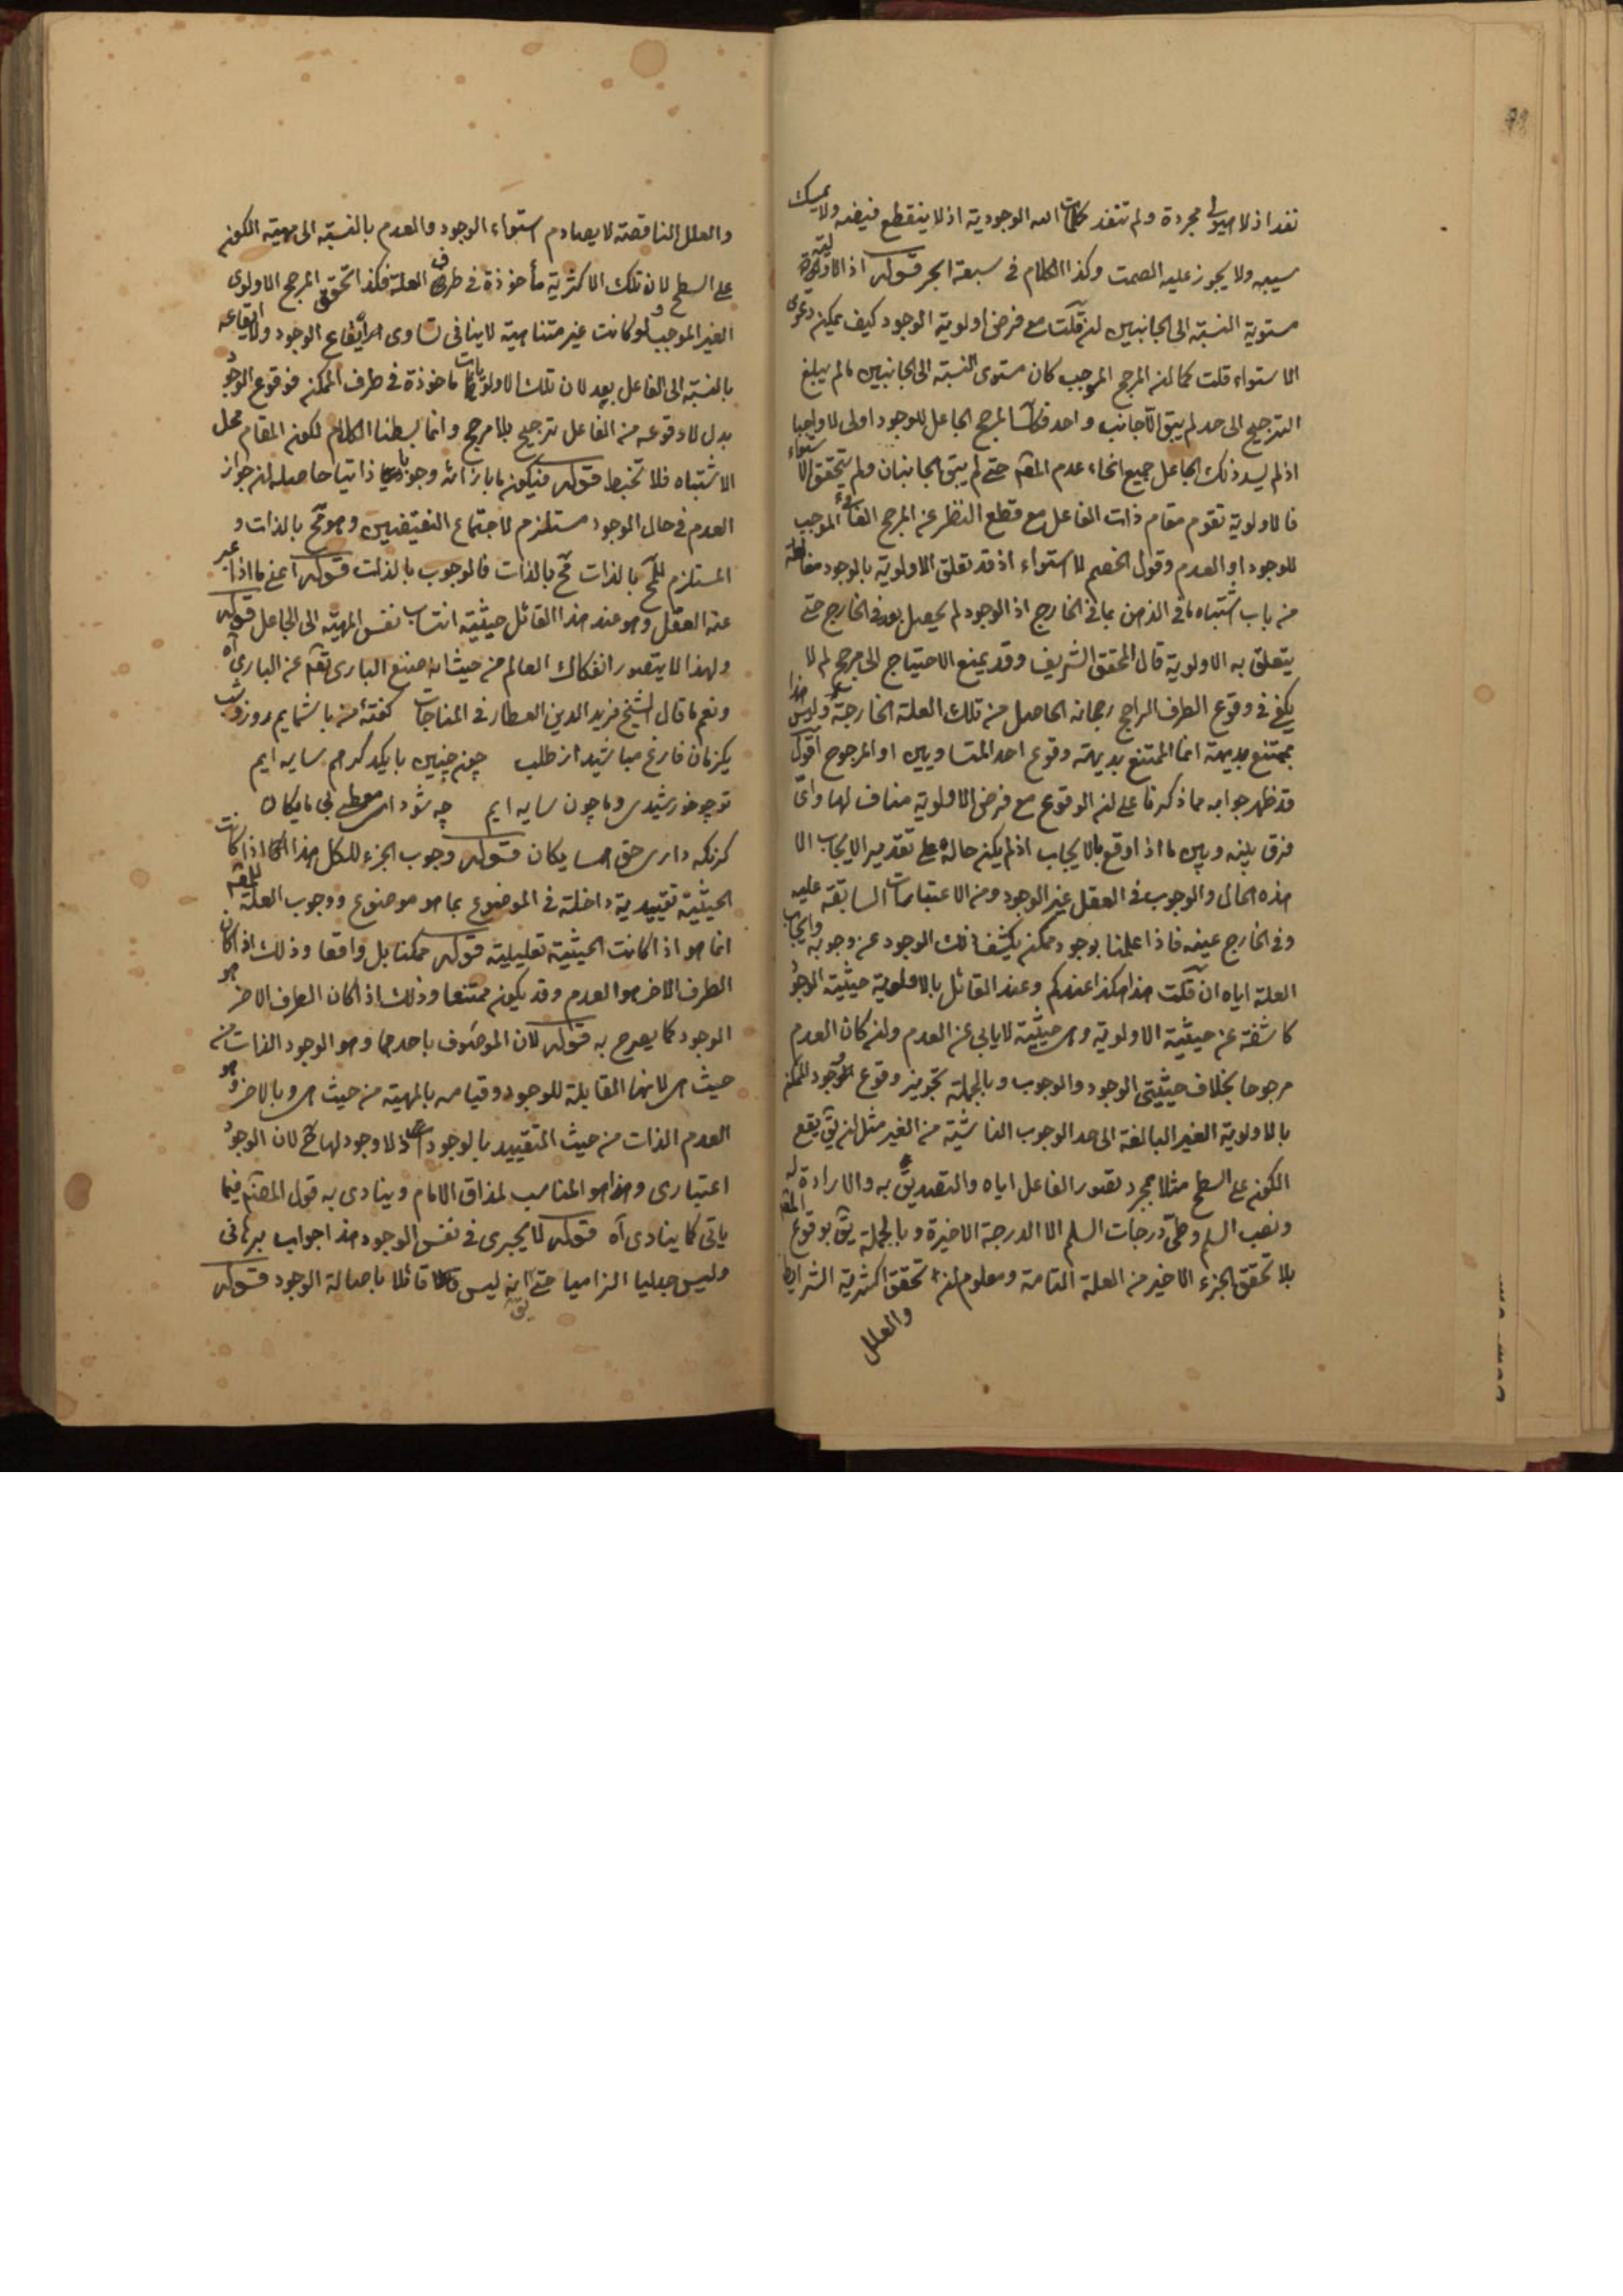 نفد اذ لا هيولى مجردة ولم تنفد كلمات الله الوجودية اذ لا ينقطع فيضه ولا يمسك
سيبه ولا يجوز عليه الصمت وكذا الكلام فى سبعة ابحر قوله اذ الاولوية
مستوية النسبة الى الجانبين ان قلت مع فرض اولوية الوجود كيف يمكن دعوى
الاستواء قلت كما ان المرجح الموجب كان مستوى النسبة الى الجانبين ما لم يبلغ
الترجيح الى حد لم يبق الا جانب واحد فكذا المرجح الجاعل للوجود اولى لا واجبا
اذ لم يسد ذلك الجاعل جميع انحاء عدم المعلم حتى لم يبق الجانبان ولم يتحقق الاستواء
فالاولوية تقوم مقام ذات الفاعل مع قطع النظر عن المرجح الغائى الموجب
للوجود او العدم وقول الخصم لا استواء اذ قد تعلق الاولوية بالوجود مغالطة
من باب اشتباه ما فى الذهن بما فى الخارج اذ الوجود لم يحصل بعد فى الخارج حتى
يتعلق به الاولوية قال المحقق الشريف وقد يمنع الاحتياج الى مرجح لم لا
يكفى فى وقوع الطرف الراجح رجحانه الحاصل من تلك العلة الخارجة وليس هذا
بممتنع بديهة انما الممتنع بديهة وقوع احد المتساويين او المرجوح اقول
قد ظهر جوابه مما ذكرنا على ان الوقوع مع فرض الاولوية مناف لها واى
فرق بينه وبين ما اذا وقع بالايجاب اذ لم يكن حاله على تقدير الايجاب الا
هذه الحال والوجوب فى العقل غير الوجود ومن الاعتبارات السابقة عليه
وفى الخارج عينه فاذا علمنا بوجود ممكن يكشف ذلك الوجود عن وجوبه وايجاب
العلة اياه ان قلت هذا هكذا عندكم وعند القائل بالاولوية حيثية الوجود
كاشفة عن حيثية الاولوية وهى حيثية لا يابى عن العدم وان كان العدم
مرجوحا بخلاف حيثيتى الوجود والوجوب وبالجملة تجويز وقوع الوجود للممكن
بالاولوية الغير البالغة الى حد الوجوب الناشية من الغير مثل ان يق يقع
الكون على السطح مثلا بمجرد تصور الفاعل اياه والتصديق به والارادة له
ونصب السلم وطى درجات السلم الا الدرجة الاخيرة وبالجملة يق بوقوع المعلم
بلا تحقق الجزء الاخير من العلة التامة ومعلوم ان تحقق اكثرية الشرايط
والعلل
والعلل الناقصة لا يصادم استواء الوجود والعدم بالنسبة الى مهية الكون
على السطح لان تلك الاكثرية مأخوذة فى طرف العلة فكذا تحقق المرجح الاولوى
الغير الموجب ولو كانت غير متناهية لاينافى تساوى ايقاع الوجود ولا ايقاعه
بالنسبة الى الفاعل بعد لان تلك الاولويات ماخوذة فى طرف الممكن فوقوع الوجود
بدل لا وقوعه من الفاعل ترجيح بلا مرجح وانما بسطنا الكلام لكون المقام محل
الاشتباه فلا تخبط قوله فيكون ما بازائه وجوبا ذاتيا حاصله ان جواز
العدم فى حال الوجود مستلزم لاجتماع النقيضين وهو مح بالذات و
المستلزم للمح بالذات مح بالذات فالوجوب بالذات قوله اعنى ما اذا عبر
عنه العقل وهو عند هذا القائل حيثية انتساب نفس المهية الى الجاعل قوله
ولهذا لا يتصور انفكاك العالم من حيث انه صنع البارى تعم عن البارى آه
ونعم ما قال الشيخ فريد الدين العطار فى المناجات كفتهٔ من با شمايم روز وشب
يكزمان فارغ مباشيد از طلب چون چنين با يكدكر هم سايه ايم
تو چو خورشيدى وما چون سايه ايم چه شود اى معطى بى مايكان
كر نكه دارى حق همسايكان قوله وجوب الجزء للكل هذا اذا كانت
الحيثية تقييدية داخلة فى الموضوع بما هو موضوع ووجوب العلة للمعلم
انما هو اذا كانت الحيثية تعليلية قوله ممكنا بل واقعا وذلك اذا كان
الطرف الاخر هو العدم وقد يكون ممتنعا وذلك اذا كان الطرف الاخر هو
الوجود كما يصرح به قوله لان الموصوف باحدهما وهو الوجود الذات من
حيث هى لانها المقابلة للوجود وقيامه بالمهية من حيث هى وبالاخر وهو
العدم الذات من حيث التقييد بالوجود اذ لا وجود لها ح لان الوجود
اعتبارى وهذا هو المناسب لمذاق الامام وينادى به قول المصنم فيما
ياتى كما ينادى آه قوله لا يجرى فى نفس الوجود هذا جواب برهانى
وليس جدليا الزاميا حتى يق انه ليس قائلا باصالة الوجود قوله